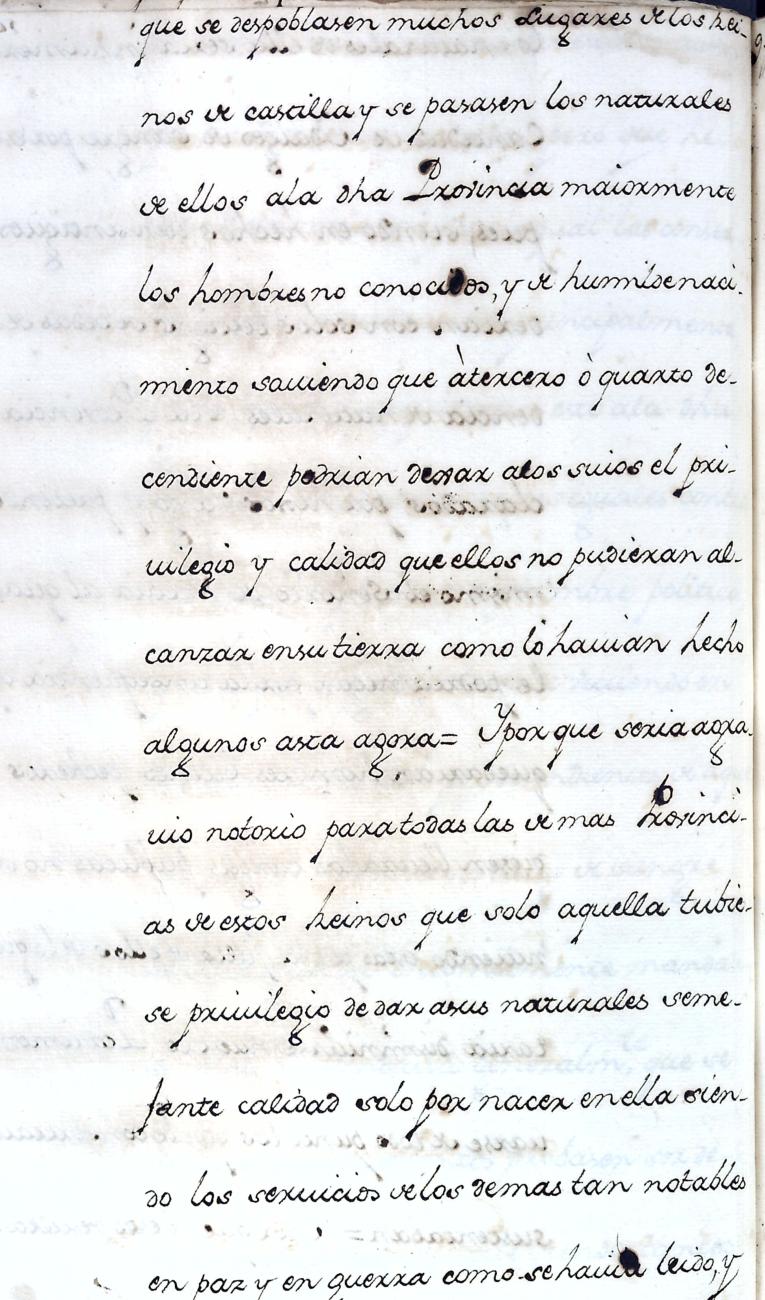 que se despoblasen muchos Lugares de los Rei-
nos de castilla y se pasasen los naturales
de ellos ala dha Provincia maiormente
los hombres no conocidos, y de humilde naci-
miento sauiendo que àtercero ò quarto de-
cendiente podrian dexar alos suios el pri-
uilegio y calidad que ellos no pudieran al-
canzar ensu tierra como lo hauian hecho
algunos asta agora= Ypor que seria agra-
uio notorio para todas las demas Provinci-
as de estos Reinos que solo aquella tubie-
se priuilegio de dar asus naturales seme-
jante calidad solo por nacer en ella sien-
do los seruicios delos demas tan notables
en paz y en guerra como se hauia leido, y